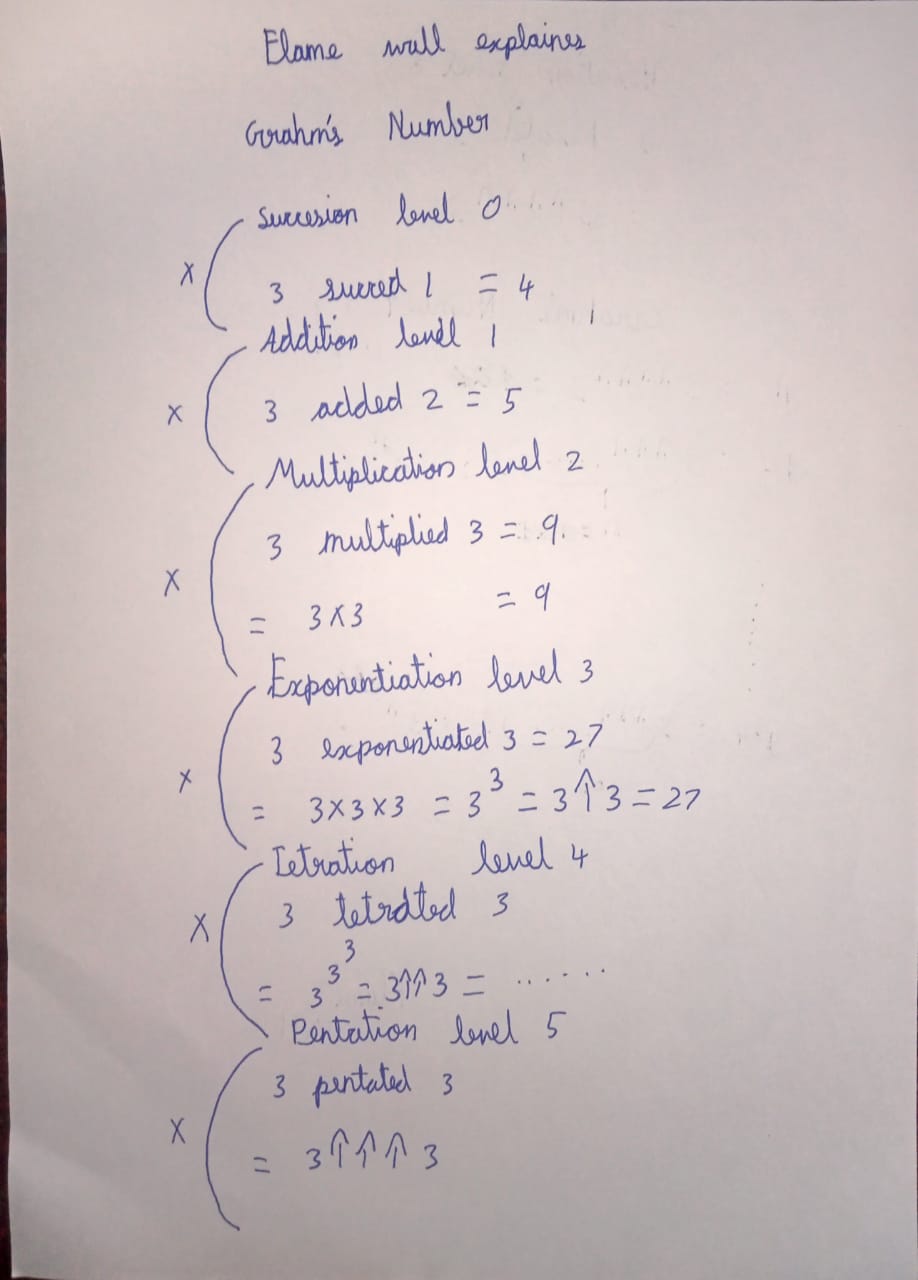 Elame wall explaines
Grahm's Number
Succesion level 0
3 succed 1 = 4
Addition level 1
3 added 2 = 5
Multiplication level 2
3 multiplied 3 = 9.
= 3×3 = 9
Exponentiation level 3
3 exponentiated 3 = 27
= 3×3×3 = 3³ = 3↑3 = 27
Tetration level 4
3 tetrated 3
= 3^3^3 = 3↑↑3 = ......
Pentation level 5
3 pentated 3
= 3↑↑↑3
X
X
X
X
X
X